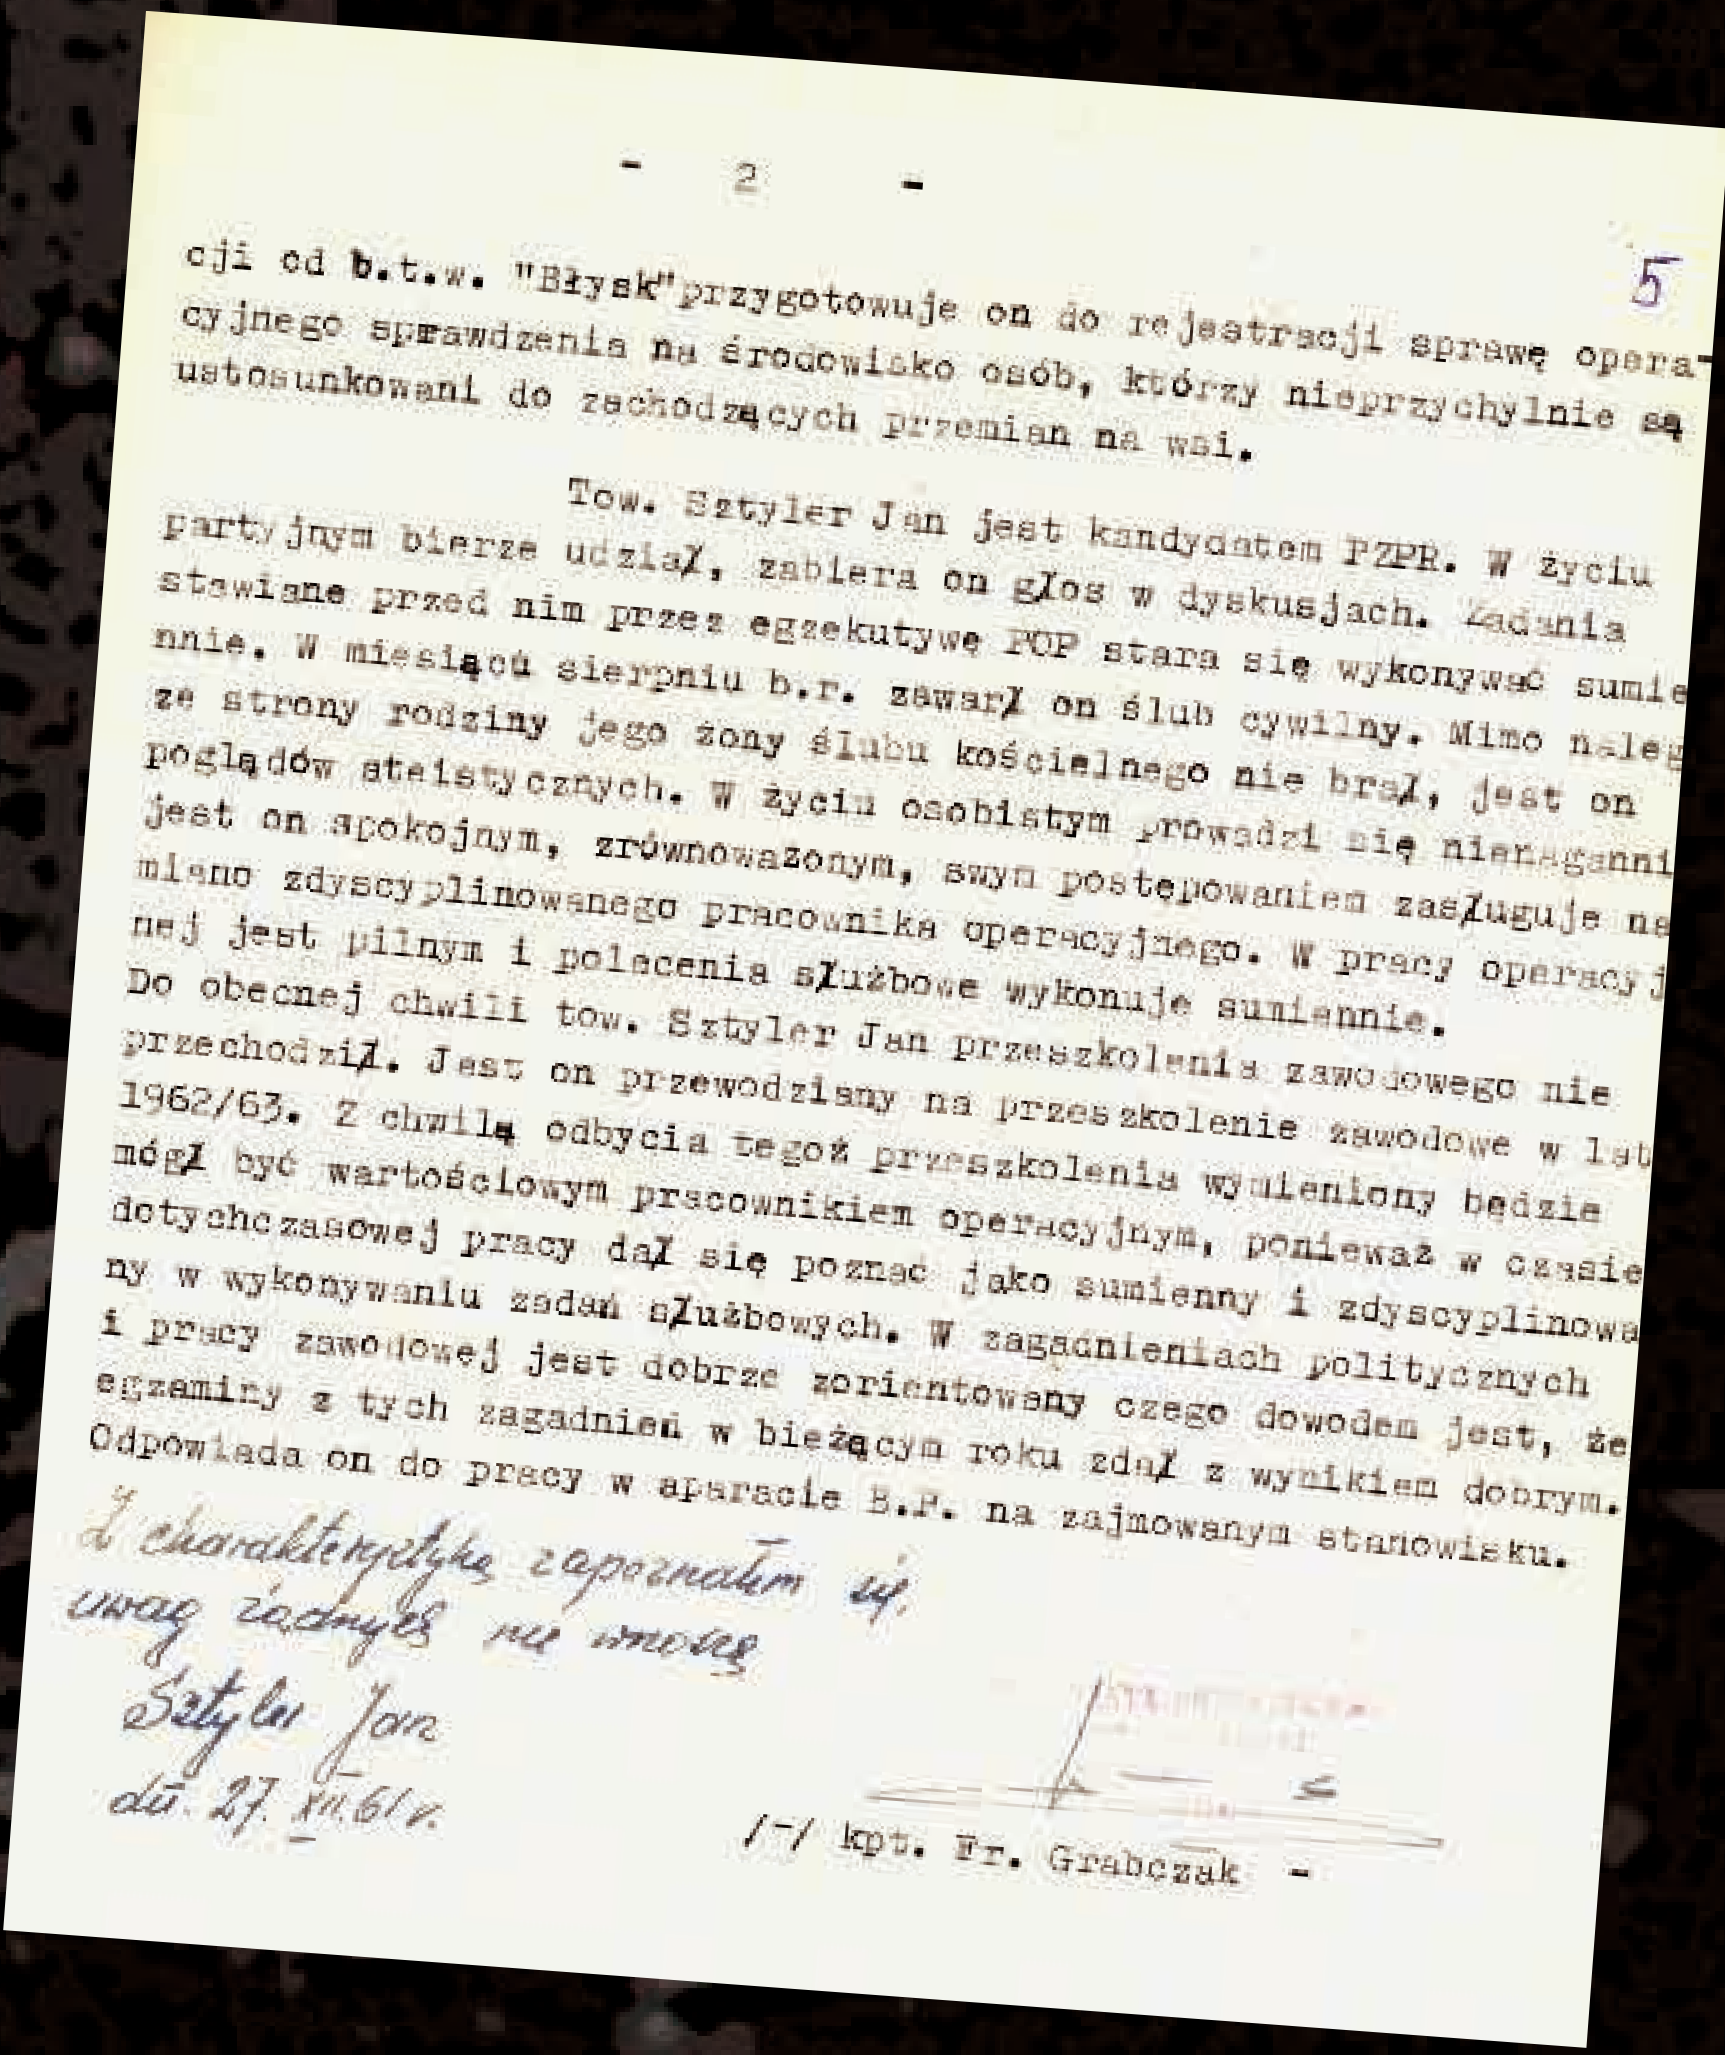 - 2 -
5
cji od b.t.w. "Błysk"przygotowuje on do rejestracji sprawę opera-
cyjnego sprawdzenia na środowisko osób, którzy nieprzychylnie są
ustosunkowani do zachodzących przemian na wsi.
Tow. Sztyler Jan jest kandydatem PZPR. W życiu
partyjnym bierze udział, zabiera on głos w dyskusjach. Zadania
stawiane przed nim przez egzekutywę POP stara się wykonywać sumie
nnie. W miesiącu sierpniu b.r. zawarł on ślub cywilny. Mimo naleg
ze strony rodziny jego żony ślubu kościelnego nie brał, jest on
poglądów ateistycznych. W życiu osobistym prowadzi się nienaganni
jest on spokojnym, zrównoważonym, swym postępowaniem zasługuje na
miano zdyscyplinowanego pracownika operacyjnego. W pracy operacyj
nej jest pilnym i polecenia służbowe wykonuje sumiennie.
Do obecnej chwili tow. Sztyler Jan przeszkolenia zawodowego nie
przechodził. Jest on przewodziany na przeszkolenie zawodowe w lat
1962/63. Z chwilą odbycia tegoż przeszkolenia wymieniony będzie
mógł być wartościowym pracownikiem operacyjnym, ponieważ w czasie
dotychczasowej pracy dał się poznać jako sumienny i zdyscyplinowa
ny w wykonywaniu zadań służbowych. W zagadnieniach politycznych
i pracy zawodowej jest dobrze zorientowany czego dowodem jest, że
egzaminy z tych zagadnień w bieżącym roku zdał z wynikiem dobrym.
Odpowiada on do pracy w aparacie B.P. na zajmowanym stanowisku.
Z charakterystyką zapoznałem się.
uwag żadnych nie wnoszę
Sztyler Jan
dn. 27. XII. 61 r.
/-/ kpt. Fr. Grabczak -